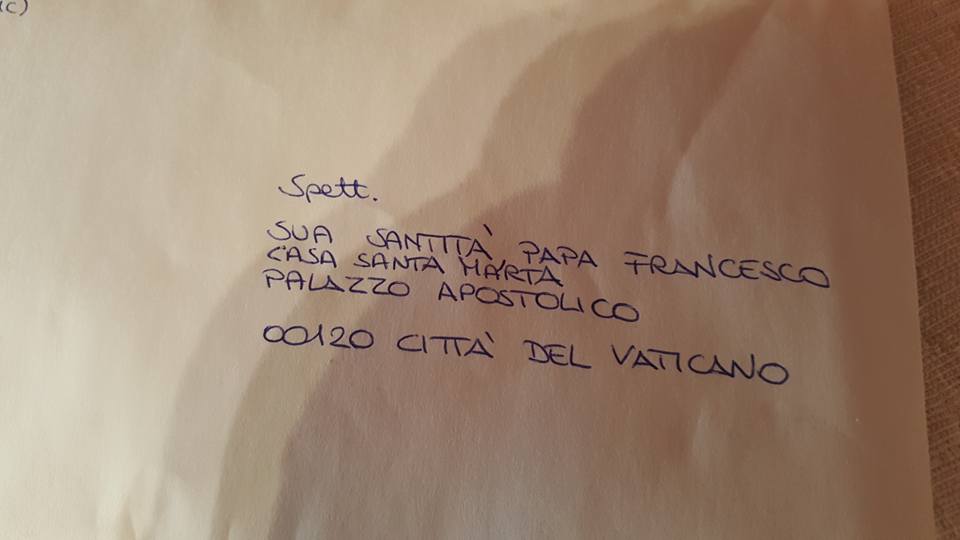 IC)
Spett.
SUA SANTITÀ PAPA FRANCESCO
CASA SANTA MARTA
PALAZZO APOSTOLICO
00120 CITTÀ DEL VATICANO